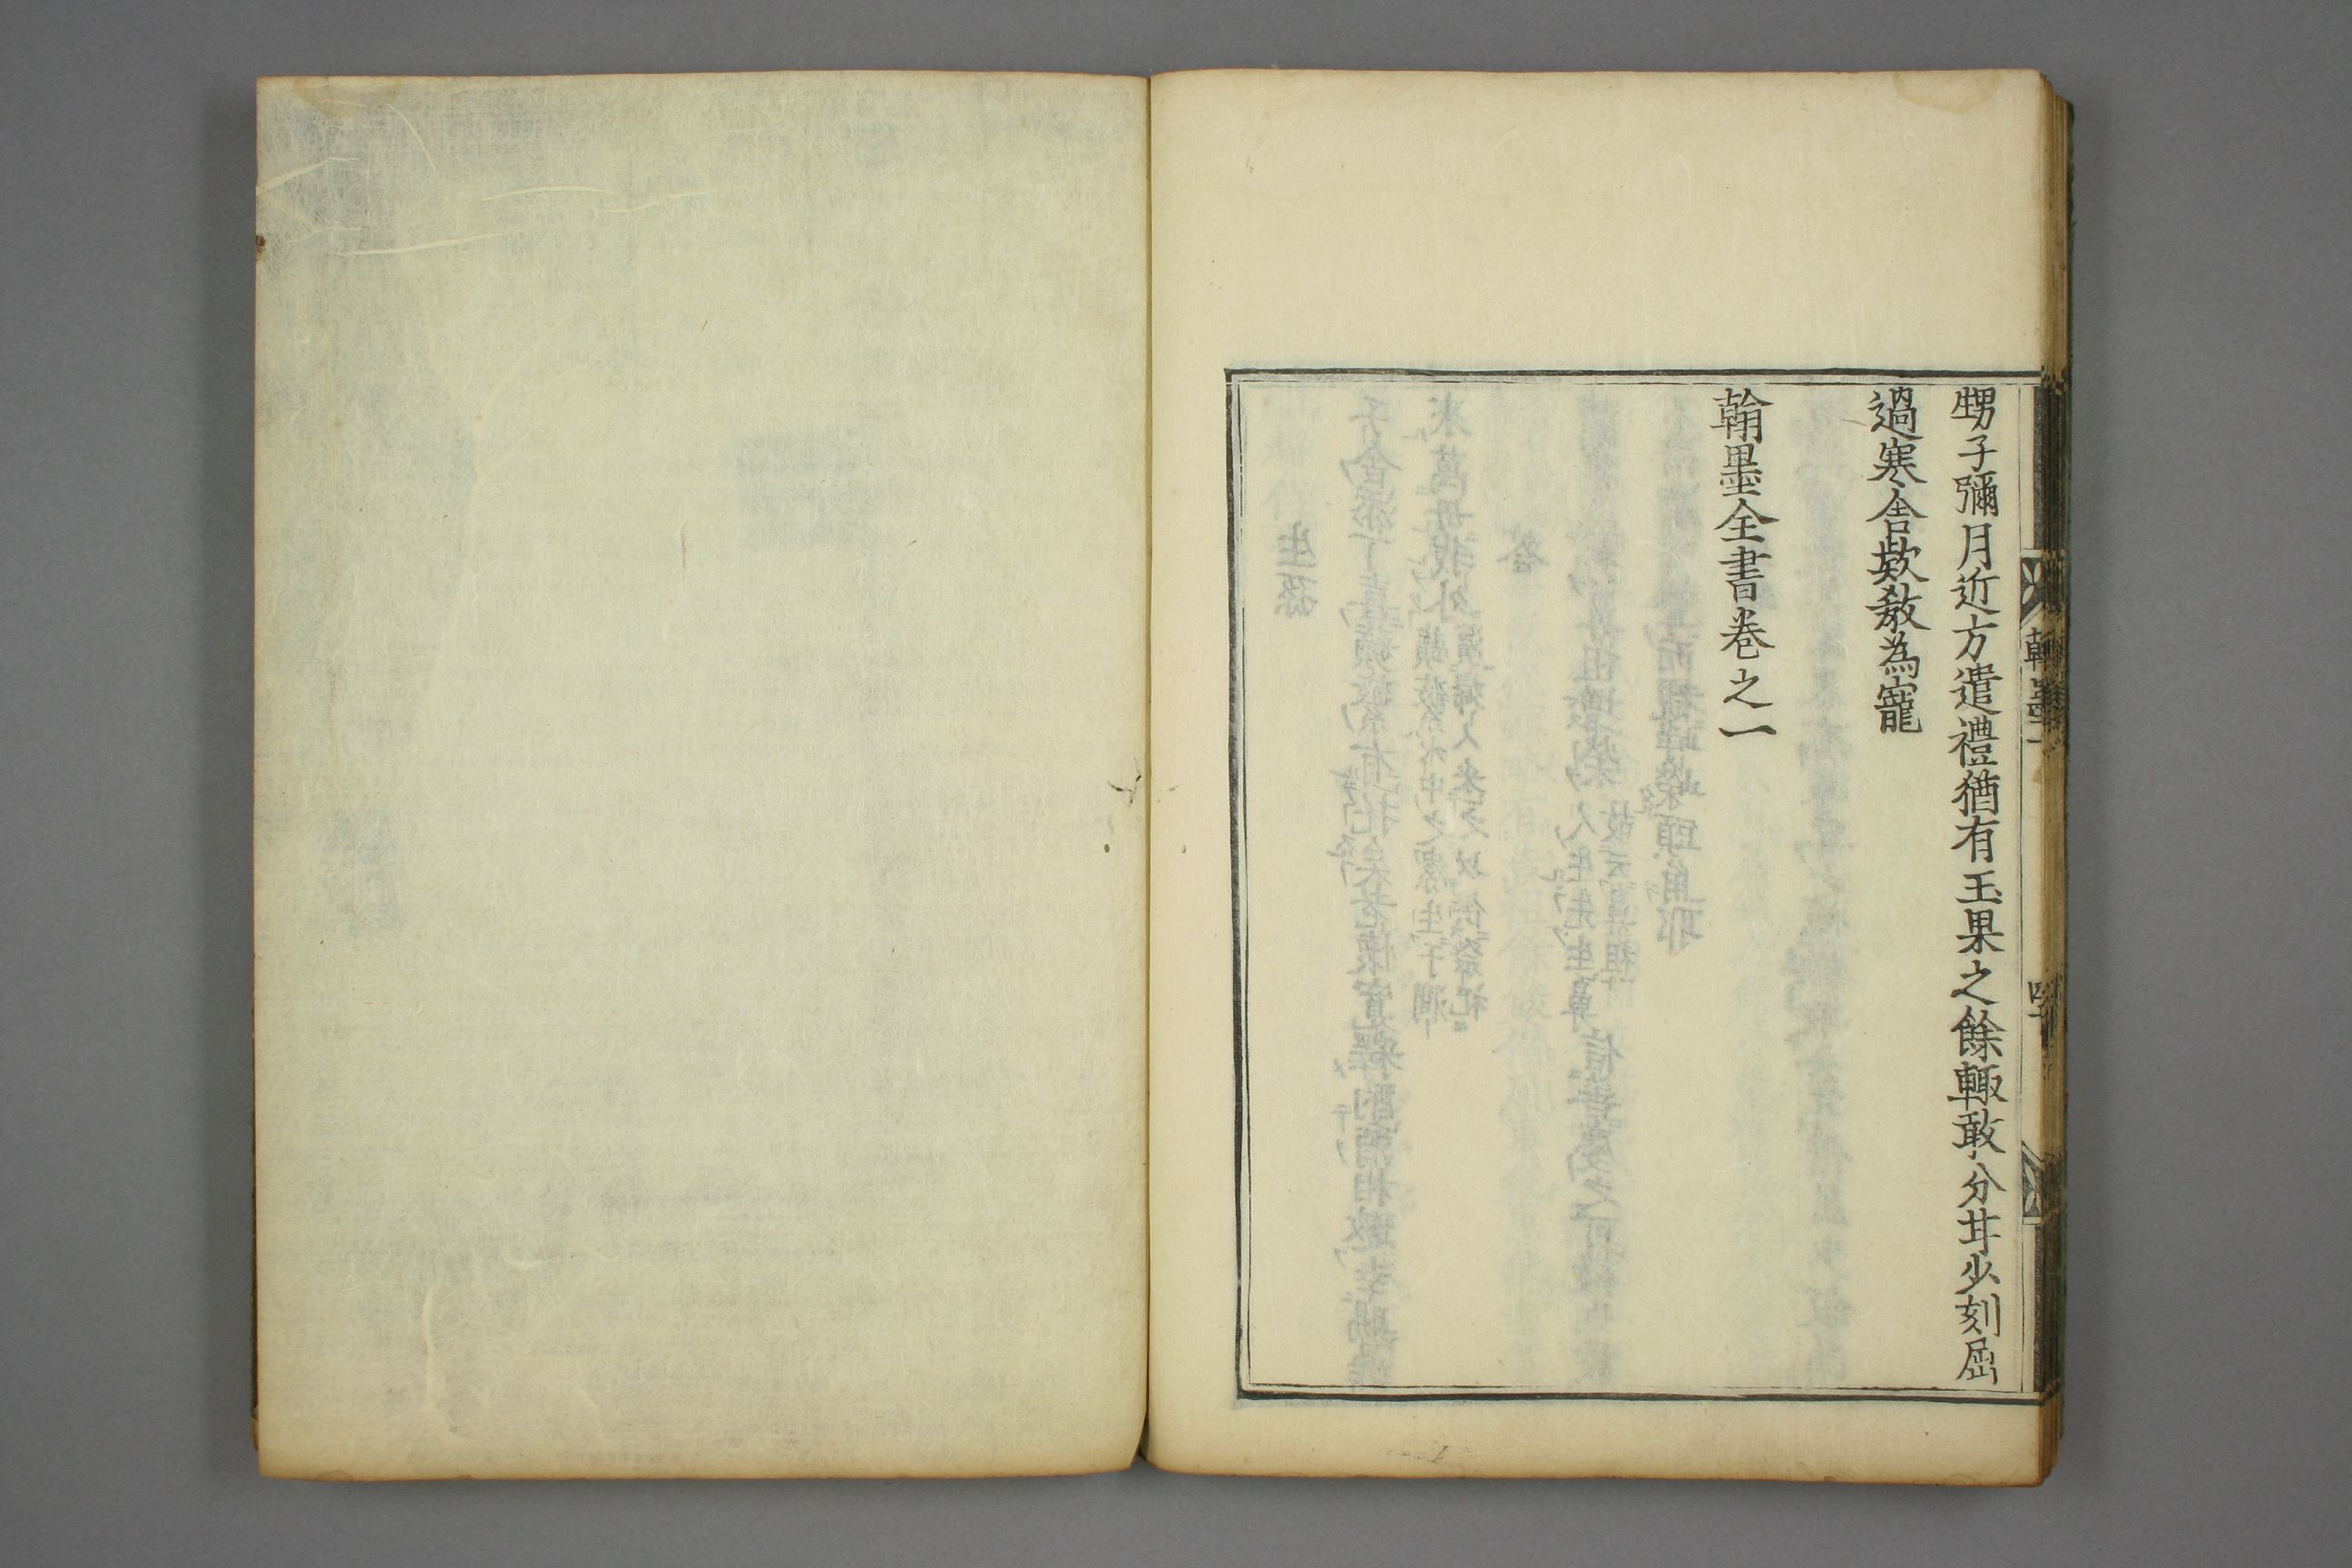 甥子彌月近方遣禮猶有玉果之餘輙敢分甘少刻屈
過寒舍款敘為寵
翰墨全書卷之一